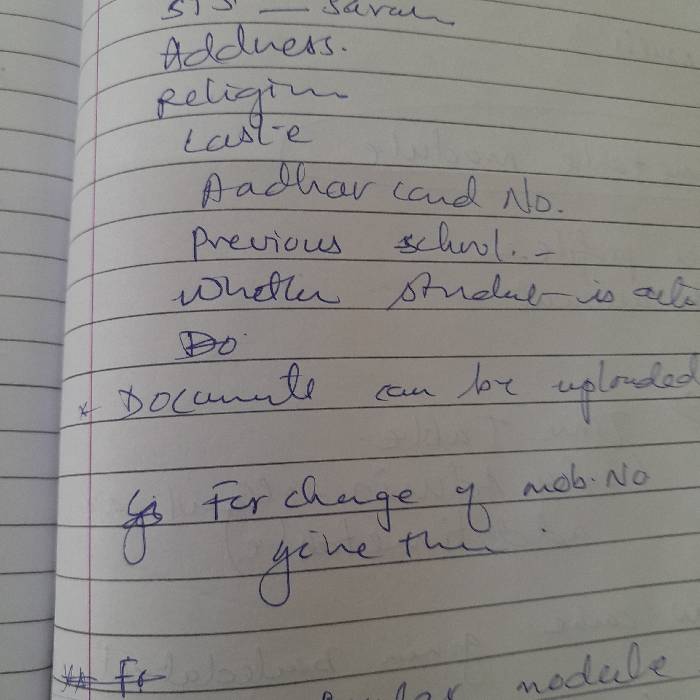 STS — Saral
Address.
Religion
Caste
Aadhar Card No.
Previous school. -
Whether student is acti
Do
* Documents can be uploaded
For change of mob. No
give the
** Fo
module